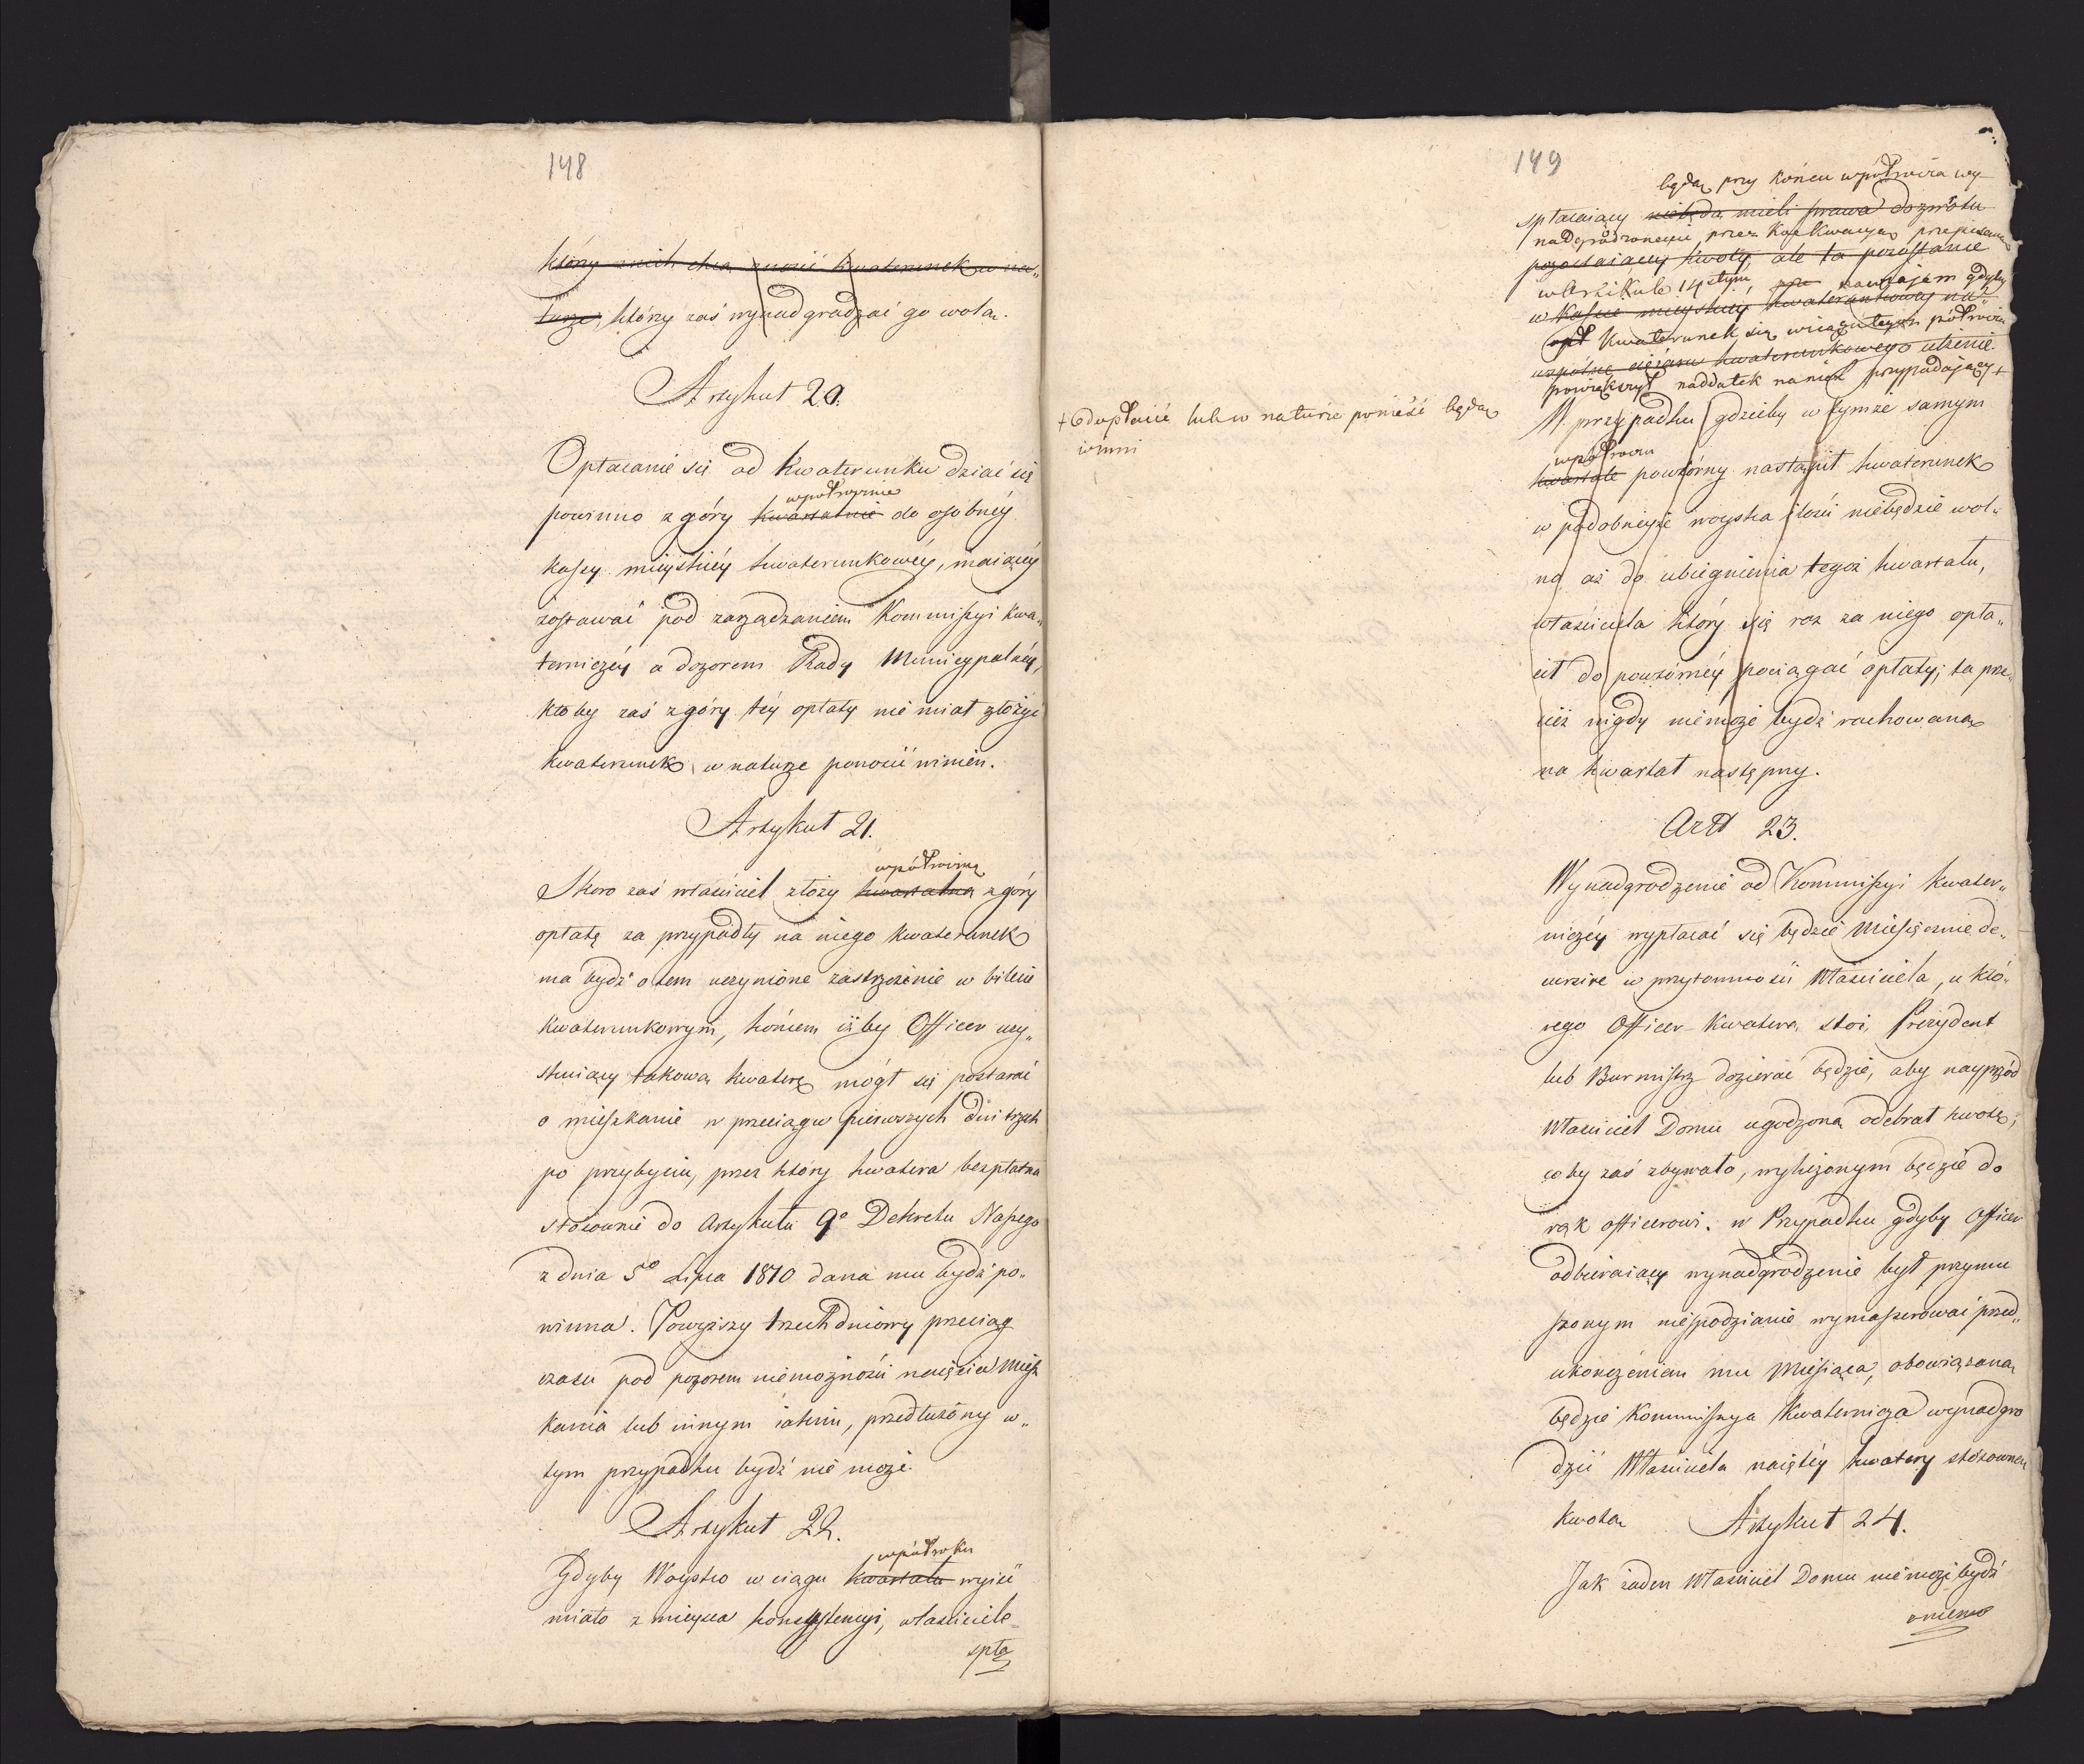 148
który z nich chcą znosić kwaterunek w na„
turze, który zaś wynadgradzać go wolą.
Artykuł 20.
Opłacanie się od Kwaterunku dziać się
wpółrocznie
powinno z góry kwartalnie do osobnéy
kassy mieyskiéy kwaterunkowéy, maiącéy
zostawać pod zarządzaniem Kommissyi Kwa„
terniczéy a dozorem Rady Municypalnéy,
ktoby zaś z góry téy opłaty nie miał złożyć
kwaterunek w naturze ponosić winien.
Artykuł 21.
wpółroczną
Skoro zaś właściciel złoży kwartalną z góry
opłatę za przypadły na niego kwaterunek
ma bydź o tem uczynione zastrzeżenie w bilecie
kwaterunkowym, końcem iżby Officer uzy„
skuiący takową kwaterę mógł się postarać
o mieszkanie w przeciągu pierwszych dni trzech
po przybyciu, przez który kwatera bezpłatna
stosownie do Artykułu 9º Dekretu Naszego
z dnia 5º Lipca 1810 dana mu bydź po„
winna. Powyższy trzechdniowy przeciąg
czasu pod pozorem niemożności naięcia miesz
kania lub innym iakim, przedłużony w„
tym przypadku bydź nie może.
Artykuł 22.
wpółroku
Gdyby Woysko w ciągu kwartału wyiść
miało z mieysca konsystencyi, właściciele
spła
149
będą przy końcu wpółrocza wy
spłacaiący niebędą mieli prawa do zwrotu
nadgrodzonemi, przez
pozostaiącey kwoty ale ta pozostanie
w Artikule 14stym, nawzajem gdyby
w kassie mieyskiey kwaterunkowey na
Kwaterunek się wciągu tegoż półrocza
wspólne ciężaru kwaterunkowego ulżenie.
powiększył naddatek na nich przypadający +
+ dopłacić lub w naturze ponieść będą
winni
W przypadku gdzieby w tymże samym
wpółroczu
kwartale powtórny nastąpił kwaterunek
w podobneyże woyska ilości niebędzie wol„
no aż do ubiegnienia tegoż kwartału,
właściciela który się raz za niego opła„
cił do powtórnéy pociągać opłaty; ta prze„
cież nigdy niemoże bydź rachowaną
na kwartał następny.
Artł 23.
Wynadgrodzenie od Kommissyi kwater„
niczéy wypłacać się będzie Miesięcznie de„
cursive w przytomności Właściciela, u któ„
rego Officer Kwaterą stoi, Prezydent
lub Burmistrz dozierać będzie, aby nayprzód
Właściciel Domu ugodzoną odebrał kwotę,
coby zaś zbywało, wyliczonym będzie do
rąk officerowi. w Przypadku gdyby Officer
odbieraiący wynadgrodzenie był przymu
szonym niespodzianie wymaszerować przed„
ukończeniem mu Miesiąca, obowiązaną
będzie Kommissya Kwaternicza wynadgro
dzić Właściciela naiętéy kwatery stosowną
kwotą
Artykuł 24.
Jak żaden Właściciel Domu niemoże bydź